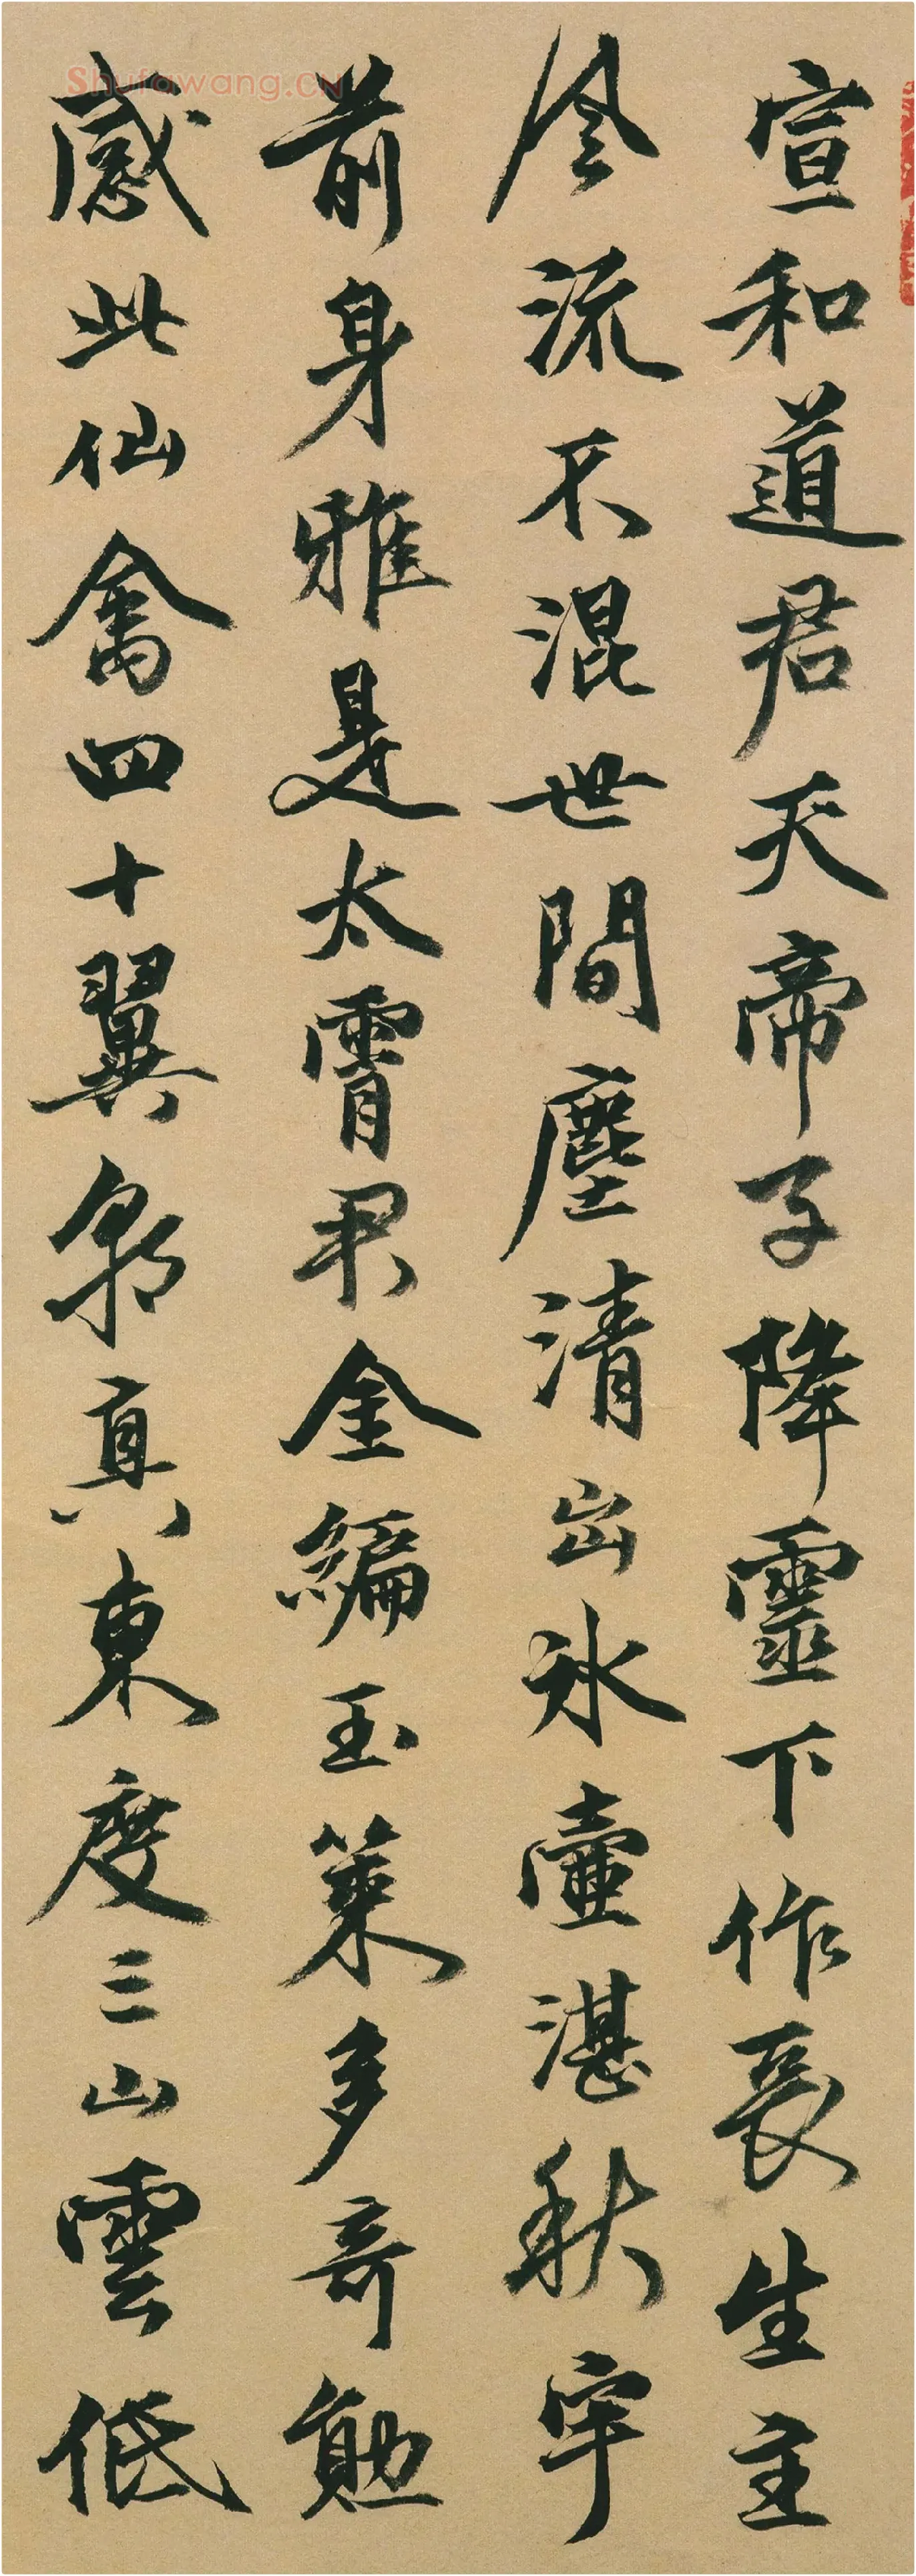 宣和道君天帝子降靈下作長生主
風流不混世間塵清出冰壺湛秋宇
前身雅是太霄君金編玉策多奇勲
感此仙禽四十翼朝真東度三山雲低
Shufawang.CN